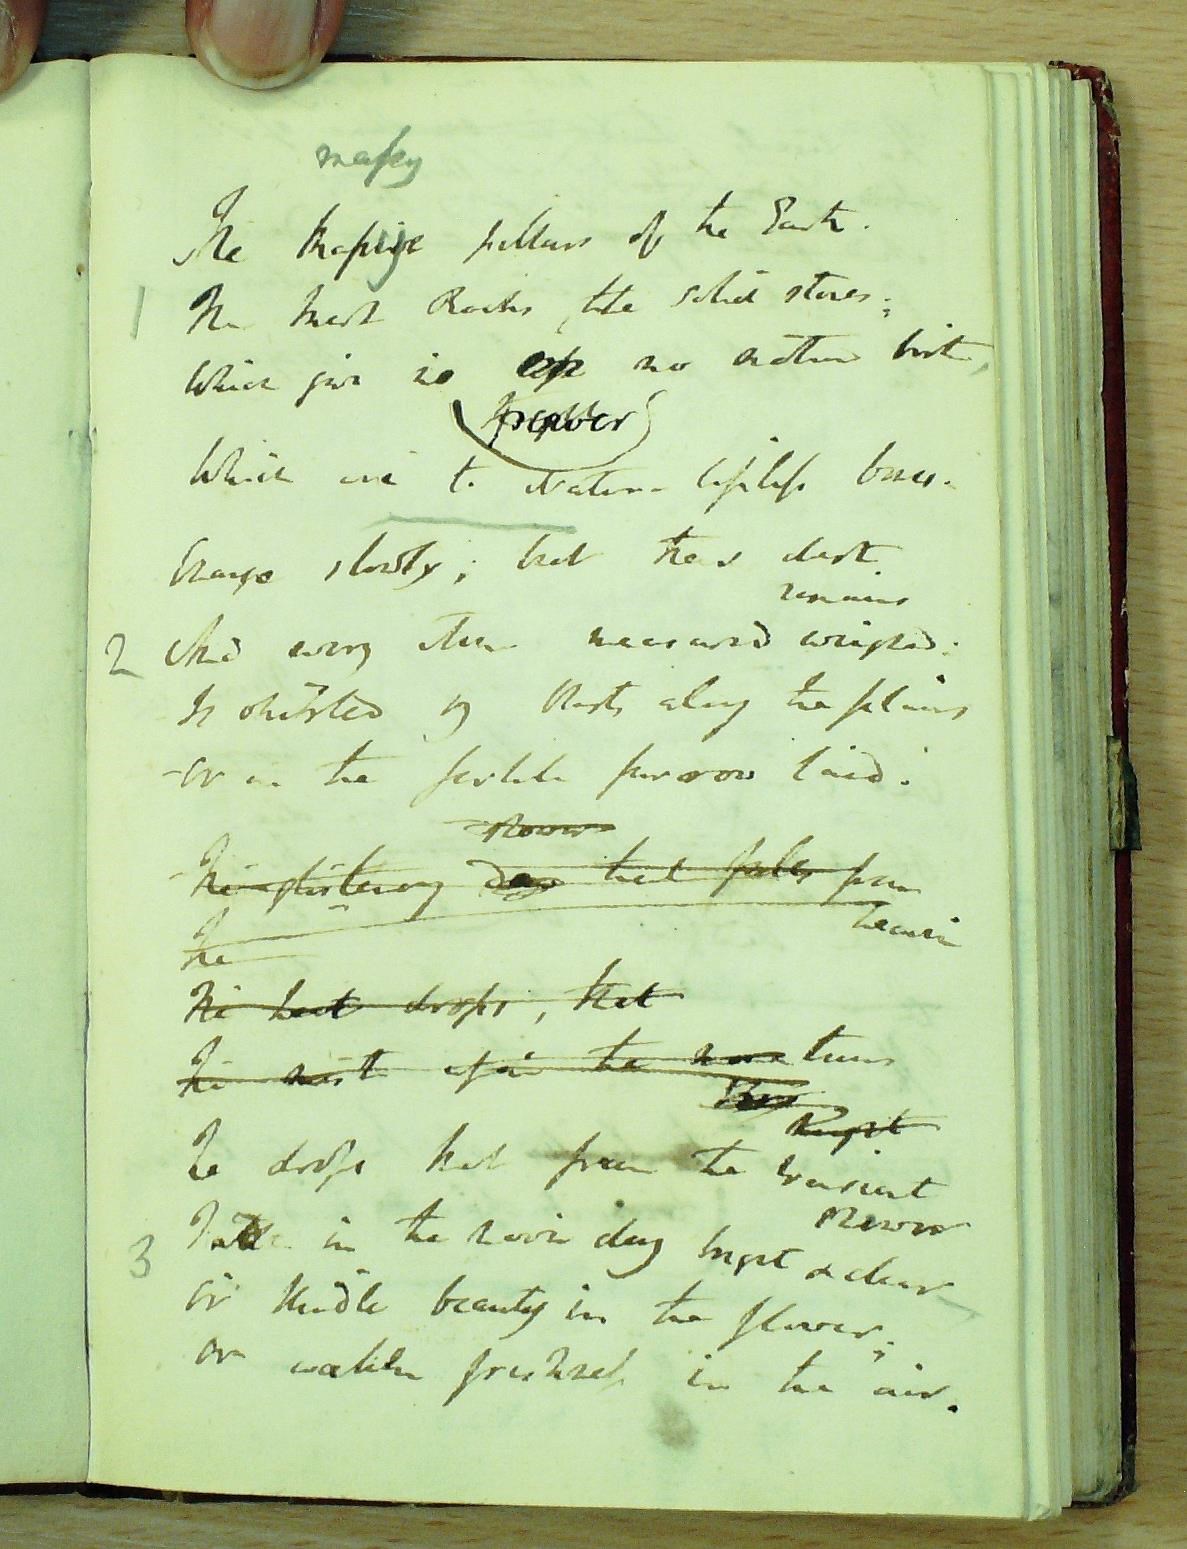 massy
The massive pillars of the Earth.
1 The inert Rocks, the solid stones;
Which give no no motion birth,
Which are to Nature lifeless bones.
Change slowly; but their dust
remains
2 And every atom measured weighed.
Is whirled by blasts along the plains
or in the fertile furrow laid.
Shower
The glistening that falls from
heaven
The
The drops, that
The mist upon the turns
Bright
The drops that from the transient
Shower
3 Fall in the noon day bright & clear
Or kindle beauty in the flower;
Or waken freshness in the air.